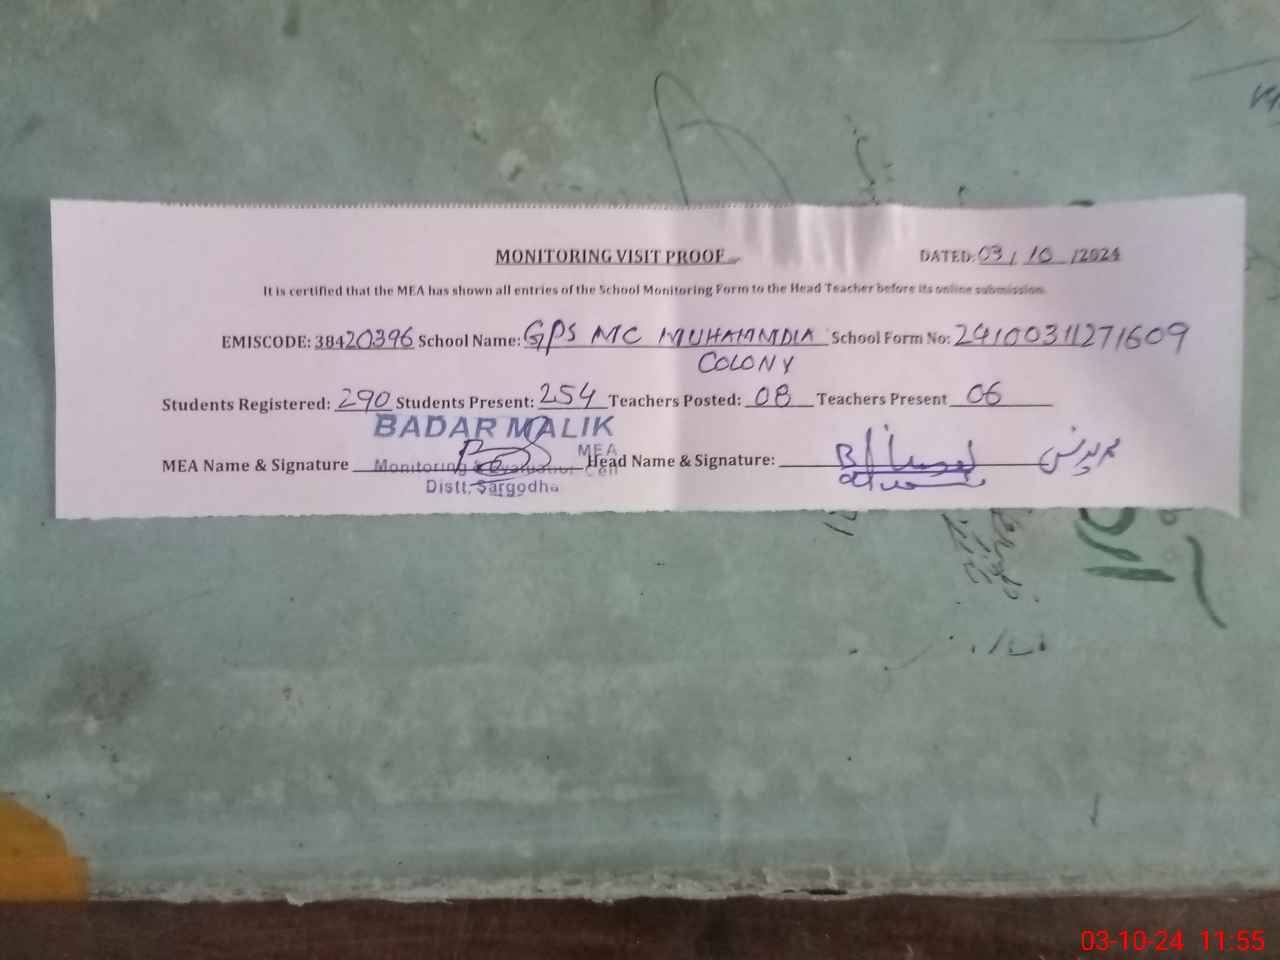 MONITORING VISIT PROOF DATED: 03/10/2024
It is certified that the MEA has shown all entries of the School Monitoring Form to the Head Teacher before its online submission.
EMISCODE: 38420396 School Name: GPS MC MUHAMMDIA School Form No: 24100311271609
COLONY
Students Registered: 290 Students Present: 254 Teachers Posted: 08 Teachers Present 06
BADAR MALIK
MEA
MEA Name & Signature Head Name & Signature:
Monitoring & Evaluation Cell
Distt. Sargodha
03-10-24 11:55